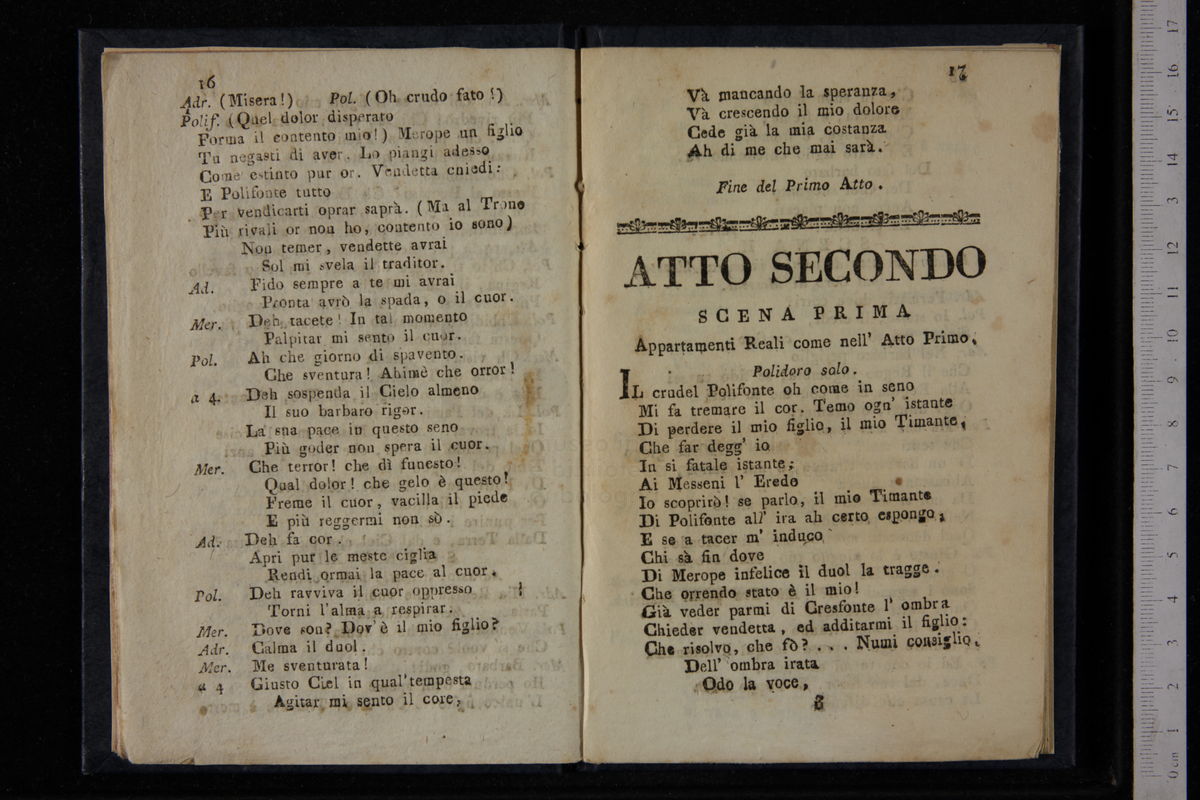 16
Adr. (Misera!) Pol. (Oh crudo fato!)
Polif. (Quel dolor disperato
Forma il contento mio!) Merope un figlio
Tu negasti di aver. Lo piangi adesso
Come estinto pur or. Vendetta chiedi:
E Polifonte tutto
Per vendicarti oprar saprà. (Ma al Trono
Più rivali or non ho, contento io sono)
Non temer, vendette avrai
Sol mi svela il traditor.
Ad. Fido sempre a te mi avrai
Pronta avrò la spada, o il cuor.
Mer. Deh tacete! In tal momento
Palpitar mi sento il cuor.
Pol. Ah che giorno di spavento.
Che sventura! Ahimè che orror!
a 4. Deh sospenda il Cielo almeno
Il suo barbaro rigor.
La sua pace in questo seno
Più goder non spera il cuor.
Mer. Che terror! che dì funesto!
Qual dolor! che gelo è questo!
Freme il cuor, vacilla il piede
E più reggermi non sò.
Ad. Deh fa cor.
Apri pur le meste ciglia
Rendi ormai la pace al cuor.
Pol. Deh ravviva il cuor oppresso
Torni l'alma a respirar.
Mer. Dove son? Dov'è il mio figlio?
Adr. Calma il duol.
Mer. Me sventurata!
a 4 Giusto Ciel in qual'tempesta
Agitar mi sento il core,
17
Và mancando la speranza,
Và crescendo il mio dolore
Cede già la mia costanza
Ah di me che mai sarà.
Fine del Primo Atto.
ATTO SECONDO
SCENA PRIMA
Appartamenti Reali come nell' Atto Primo.
Polidoro solo.
IL crudel Polifonte oh come in seno
Mi fa tremare il cor. Temo ogn' istante
Di perdere il mio figlio, il mio Timante,
Che far degg' io
In si fatale istante;
Ai Messeni l' Erede
Io scoprirò! se parlo, il mio Timante
Di Polifonte all' ira ah certo espongo,
E se a tacer m' induco
Chi sà fin dove
Di Merope infelice il duol la tragge.
Che orrendo stato è il mio!
Già veder parmi di Cresfonte l' ombra
Chieder vendetta, ed additarmi il figlio:
Che risolvo, che fò? . . . Numi consiglio.
Dell' ombra irata
Odo la voce,